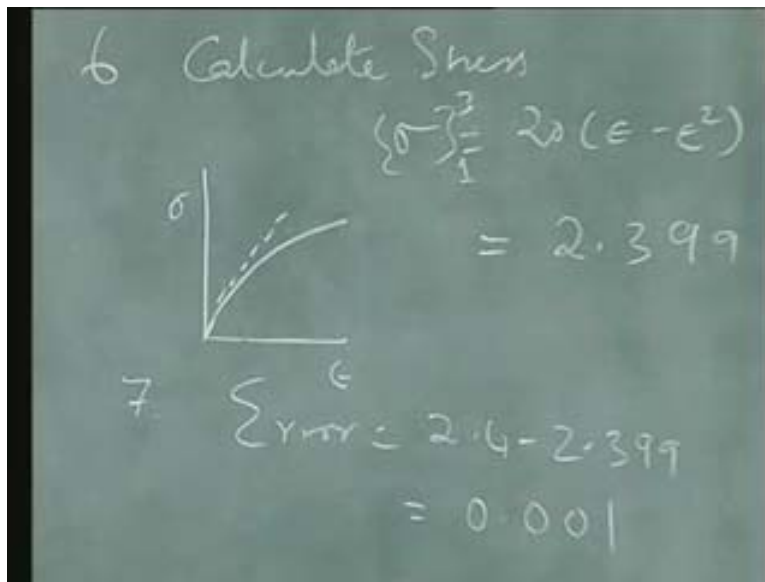 6 Calculate Stress
{σ}₁³ = 20 (ϵ - ϵ²)
= 2.399
σ
ϵ
7 Error = 2.4 - 2.399
= 0.001